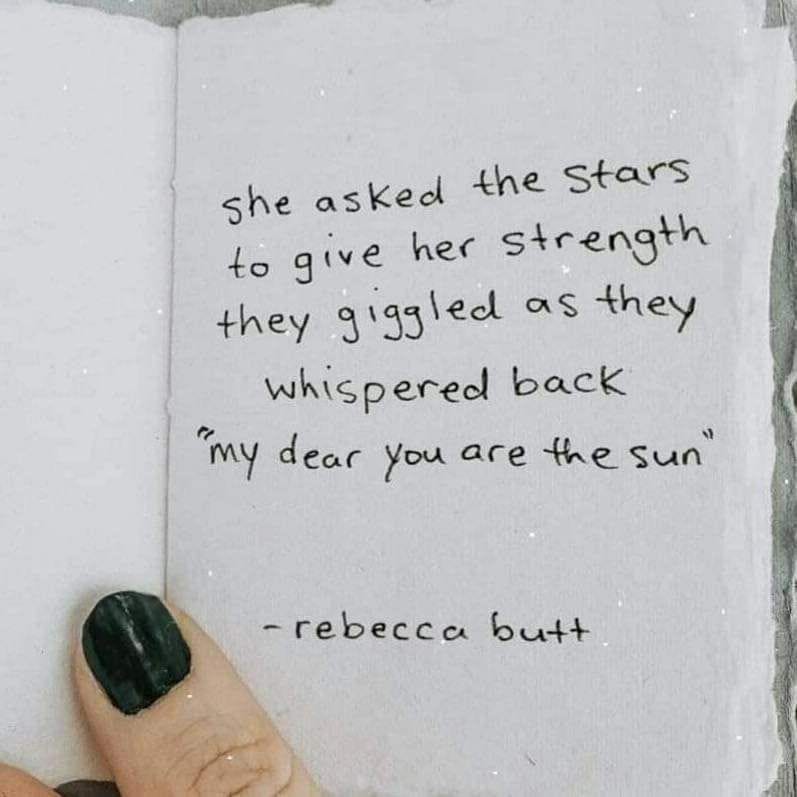 she asked the stars
to give her strength
they giggled as they
whispered back
"my dear you are the sun"
- rebecca butt